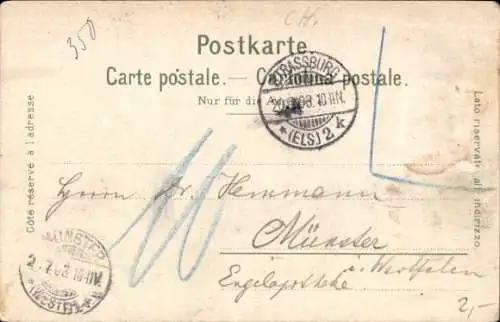 350
CH.
Postkarte.
Carte postale. — Cartolina postale.
Nur für die
STRASSBURG
10-11N.
* (ELS) 2 k
Côté réservé à l'adresse
Lato riservato all'indirizzo.
10
Herrn Dr. Hemmann
Münster
i. Westfalen
Engelapotheke
MÜNSTER
(WESTF) 1
2,-